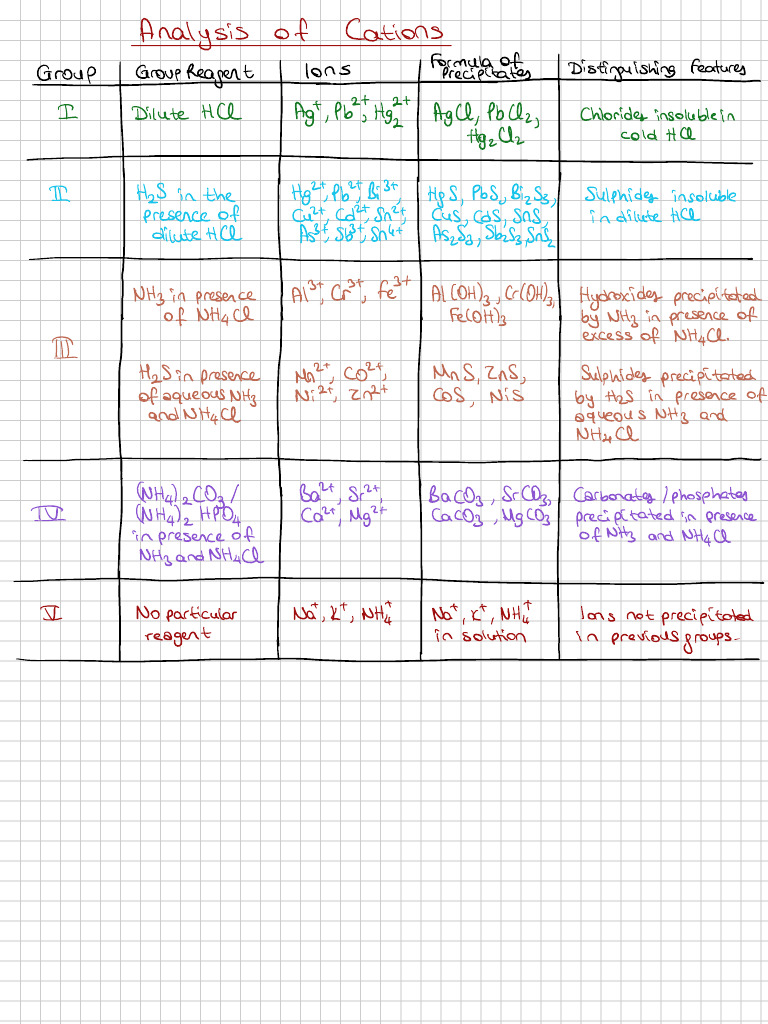 Analysis of Cations
Group
Group Reagent
Ions
Formula of
Precipitates
Distinguishing features
I
Dilute HCl
Ag⁺, Pb²⁺, Hg₂²⁺
AgCl, PbCl₂,
Hg₂Cl₂
Chlorides insoluble in
cold HCl
II
H₂S in the
presence of
dilute HCl
Hg²⁺, Pb²⁺, Bi³⁺
Cu²⁺, Cd²⁺, Sn²⁺,
As³⁺, Sb³⁺, Sn⁴⁺
HgS, PbS, Bi₂S₃,
CuS, CdS, SnS,
As₂S₃, Sb₂S₃, SnS₂
Sulphides insoluble
in dilute HCl
III
NH₃ in presence
of NH₄Cl
Al³⁺, Cr³⁺, Fe³⁺
Al(OH)₃, Cr(OH)₃,
Fe(OH)₃
Hydroxides precipitated
by NH₃ in presence of
excess of NH₄Cl.
H₂S in presence
of aqueous NH₃
and NH₄Cl
Mn²⁺, CO²⁺,
Ni²⁺, Zn²⁺
MnS, ZnS,
CoS, NiS
Sulphides precipitated
by H₂S in presence of
aqueous NH₃ and
NH₄Cl
IV
(NH₄)₂CO₃/
(NH₄)₂HPO₄
in presence of
NH₃ and NH₄Cl
Ba²⁺, Sr²⁺,
Ca²⁺, Mg²⁺
BaCO₃, SrCO₃,
CaCO₃, MgCO₃
Carbonates/phosphates
precipitated in presence
of NH₃ and NH₄Cl
V
No particular
reagent
Na⁺, K⁺, NH₄⁺
Na⁺, K⁺, NH₄⁺
in solution
Ions not precipitated
in previous groups.